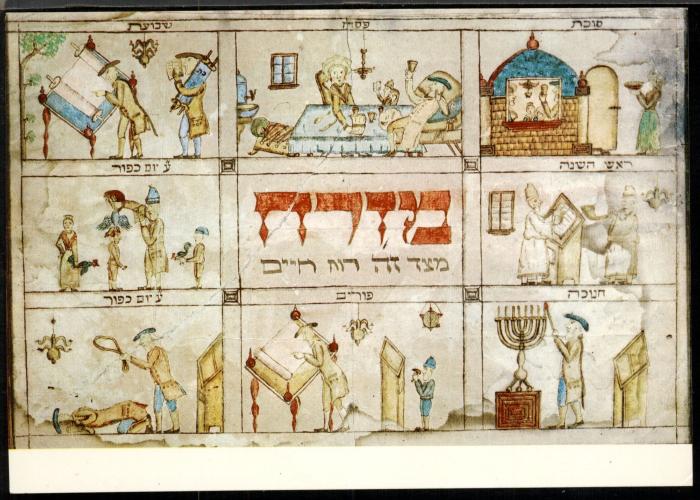 סוכת
פסח
שבועת
ראשי השנה
ע יום כפור
מזרח
מצד זה רוח חיים
חנוכה
פורים
ע יום כפור